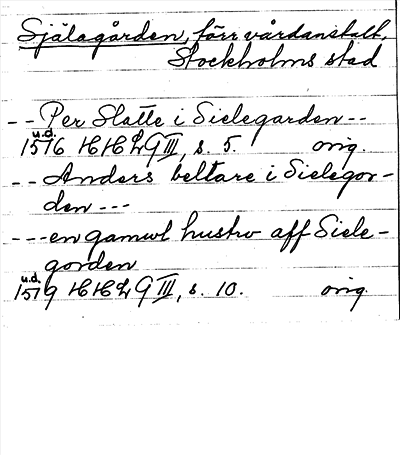 Själagården, förr vårdanstalt,
Stockholms stad
-- Per Slatte i Sielegarden --
u.d.
1576 HHLG III, s. 5. orig.
-- Anders beltare i Sielegor-
den ---
--- en gamul hustrv aff Siele-
gorden
u.d.
1579 HHLG III, s. 10. orig.